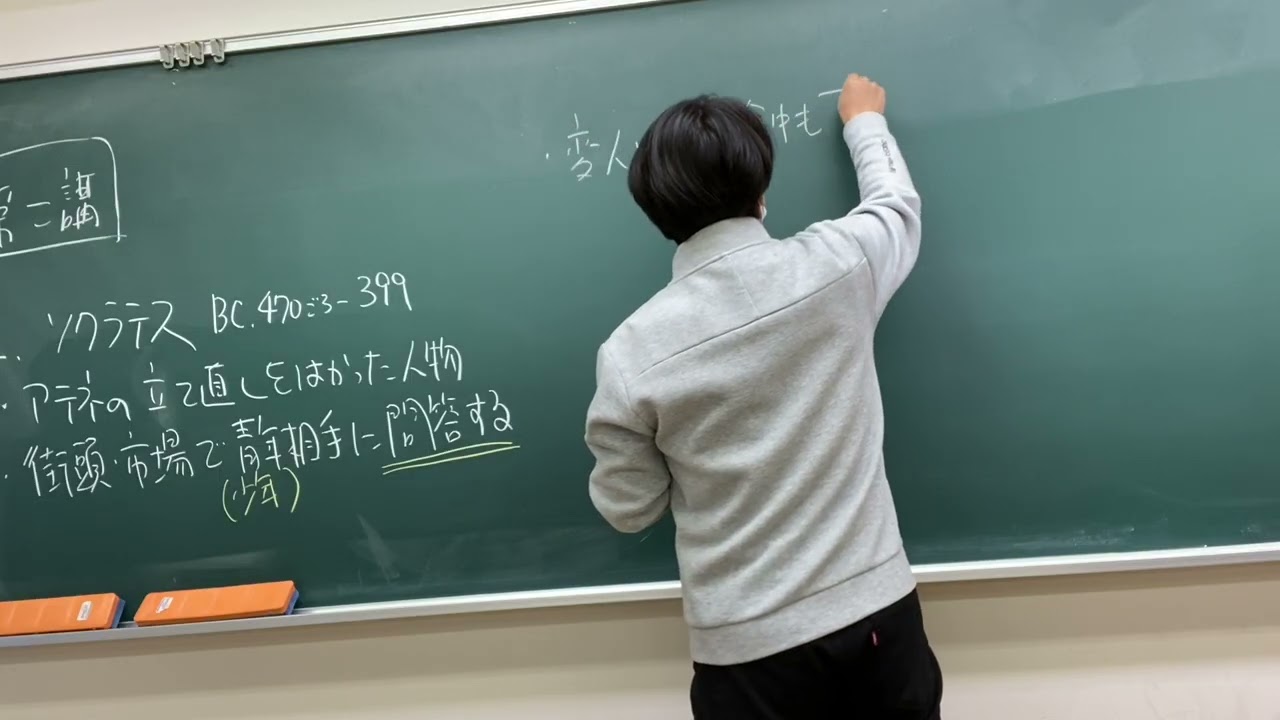 第二講
ソクラテス BC.470ごろ-399
・アテネの立て直しをはかった人物
・街頭・市場で青年相手に問答する
(少年)
・変人
中も